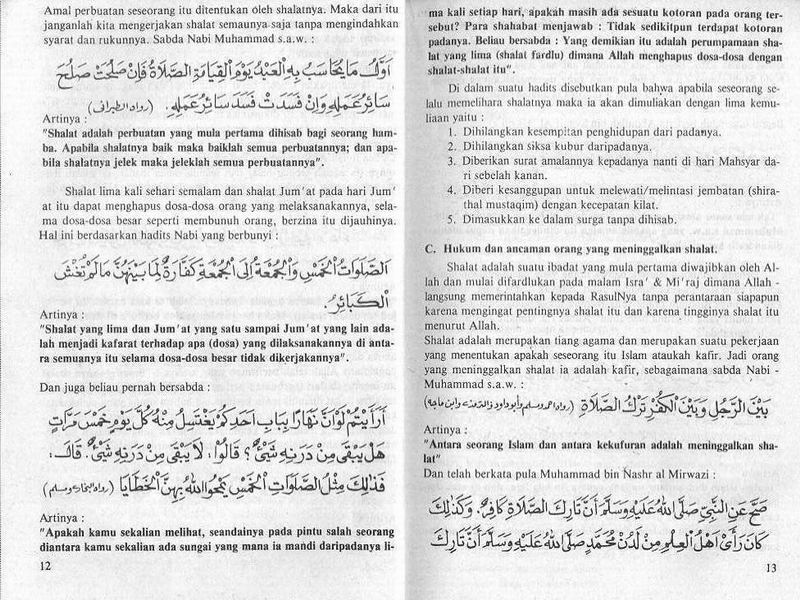 Amal perbuatan seseorang itu ditentukan oleh shalatnya. Maka dari itu
janganlah kita mengerjakan shalat semaunya saja tanpa mengindahkan
syarat dan rukunnya. Sabda Nabi Muhammad s.a.w. :
اَوَّلُ مَا يُحَاسَبُ بِهِ الْعَبْدُ يَوْمَ الْقِيَامَةِ الصَّلَاةُ فَإِنْ صَلَحَتْ صَلَحَ
سَائِرُ عَمَلِهِ وَإِنْ فَسَدَتْ فَسَدَ سَائِرُ عَمَلِهِ. (رواه الطبرانى)
Artinya :
"Shalat adalah perbuatan yang mula pertama dihisab bagi seorang ham-
ba. Apabila shalatnya baik maka baiklah semua perbuatannya; dan apa-
bila shalatnya jelek maka jeleklah semua perbuatannya".
Shalat lima kali sehari semalam dan shalat Jum'at pada hari Jum'
at itu dapat menghapus dosa-dosa orang yang melaksanakannya, sela-
ma dosa-dosa besar seperti membunuh orang, berzina itu dijauhinya.
Hal ini berdasarkan hadits Nabi yang berbunyi :
الصَّلَوَاتُ الْخَمْسُ وَالْجُمُعَةُ إِلَى الْجُمُعَةِ كَفَّارَةٌ لِمَا بَيْنَهُنَّ مَا لَمْ تُغْشَ
الْكَبَائِرُ
Artinya :
"Shalat yang lima dan Jum'at yang satu sampai Jum'at yang lain ada-
lah menjadi kafarat terhadap apa (dosa) yang dilaksanakannya di anta-
ra semuanya itu selama dosa-dosa besar tidak dikerjakannya".
Dan juga beliau pernah bersabda :
أَرَأَيْتُمْ لَوْ أَنَّ نَهَارًا بِبَابِ أَحَدِكُمْ يَغْتَسِلُ مِنْهُ كُلَّ يَوْمٍ خَمْسَ مَرَّاتٍ
هَلْ يَبْقَى مِنْ دَرَنِهِ شَيْئٌ؟ قَالُوا: لَا يَبْقَى مِنْ دَرَنِهِ شَيْئٌ. قَالَ:
فَذَلِكَ مِثْلُ الصَّلَوَاتِ الْخَمْسِ يَمْحُو اللهُ بِهِنَّ الْخَطَايَا (رواه البخارى ومسلم)
Artinya :
"Apakah kamu sekalian melihat, seandainya pada pintu salah seorang
diantara kamu sekalian ada sungai yang mana ia mandi daripadanya li-
12
ma kali setiap hari, apakah masih ada sesuatu kotoran pada orang ter-
sebut? Para shahabat menjawab : Tidak sedikitpun terdapat kotoran
padanya. Beliau bersabda : Yang demikian itu adalah perumpamaan sha-
lat yang lima (shalat fardlu) dimana Allah menghapus dosa-dosa dengan
shalat-shalat itu".
Di dalam suatu hadits disebutkan pula bahwa apabila seseorang se-
lalu memelihara shalatnya maka ia akan dimuliakan dengan lima kemu-
liaan yaitu :
1. Dihilangkan kesempitan penghidupan dari padanya.
2. Dihilangkan siksa kubur daripadanya.
3. Diberikan surat amalannya kepadanya nanti di hari Mahsyar da-
ri sebelah kanan.
4. Diberi kesanggupan untuk melewati/melintasi jembatan (shira-
thal mustaqim) dengan kecepatan kilat.
5. Dimasukkan ke dalam surga tanpa dihisab.
C. Hukum dan ancaman orang yang meninggalkan shalat.
Shalat adalah suatu ibadat yang mula pertama diwajibkan oleh Al-
lah dan mulai difardlukan pada malam Isra' & Mi'raj dimana Allah -
langsung memerintahkan kepada RasulNya tanpa perantaraan siapapun
karena mengingat pentingnya shalat itu dan karena tingginya shalat itu
menurut Allah.
Shalat adalah merupakan tiang agama dan merupakan suatu pekerjaan
yang menentukan apakah seseorang itu Islam ataukah kafir. Jadi orang
yang meninggalkan shalat ia adalah kafir, sebagaimana sabda Nabi -
Muhammad s.a.w. :
بَيْنَ الرَّجُلِ وَبَيْنَ الْكُفْرِ تَرْكُ الصَّلَاةِ (رواه احمد ومسلم وابو داود والترمذى وابن ماجه)
Artinya :
"Antara seorang Islam dan antara kekufuran adalah meninggalkan sha-
lat"
Dan telah berkata pula Muhammad bin Nashr al Mirwazi :
صَحَّ عَنِ النَّبِيِّ صَلَّى اللهُ عَلَيْهِ وَسَلَّمَ أَنَّ تَارِكَ الصَّلَاةِ كَافِرٌ. وَكَذَلِكَ
كَانَ رَأْيُ أَهْلِ الْعِلْمِ مِنْ لَدُنْ مُحَمَّدٍ صَلَّى اللهُ عَلَيْهِ وَسَلَّمَ أَنَّ تَارِكَ
13